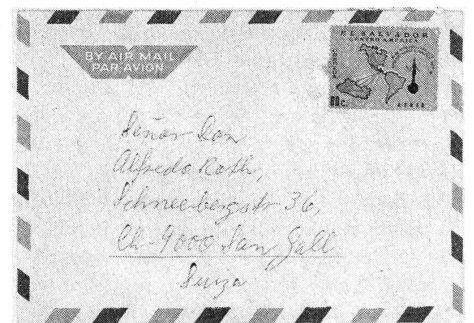 BY AIR MAIL
PAR AVION
EL SALVADOR
CENTRO AMERICA
60 c.
AEREO
Señor Don
Alfredo Roth,
Schneebergstr 36,
Ch-9000 San Gall
Suiza